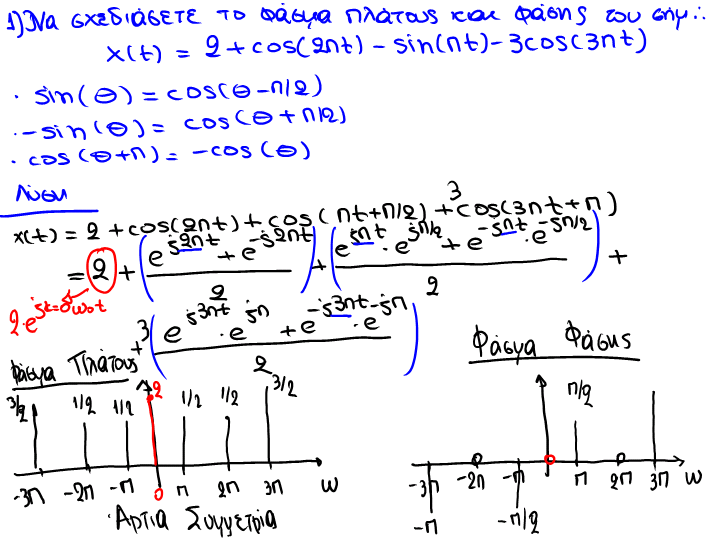 1) Να σχεδιάσετε το φάσμα πλάτους και φάσης του σήμ.:
x(t) = 2 + cos(2πt) - sin(πt) - 3cos(3πt)
· sin(θ) = cos(θ-π/2)
· -sin(θ) = cos(θ+π/2)
· cos(θ+π) = -cos(θ)
Λύση
x(t) = 2 + cos(2πt) + cos(πt+π/2) + 3cos(3πt+π)
= 2 + (e^{j2πt} + e^{-j2πt} / 2) + (e^{jπt} · e^{jπ/2} + e^{-jπt} · e^{-jπ/2} / 2) +
2·e^{jk=0ω₀t}
+ 3(e^{j3πt} · e^{jπ} + e^{-j3πt} · e^{-jπ} / 2)
Φάσμα Πλάτους
3/2 1/2 1/2 2 1/2 1/2 3/2
-3π -2π -π 0 π 2π 3π ω
Άρτια Συμμετρία
Φάσμα Φάσης
π/2
-3π -2π -π π 2π 3π ω
-π -π/2